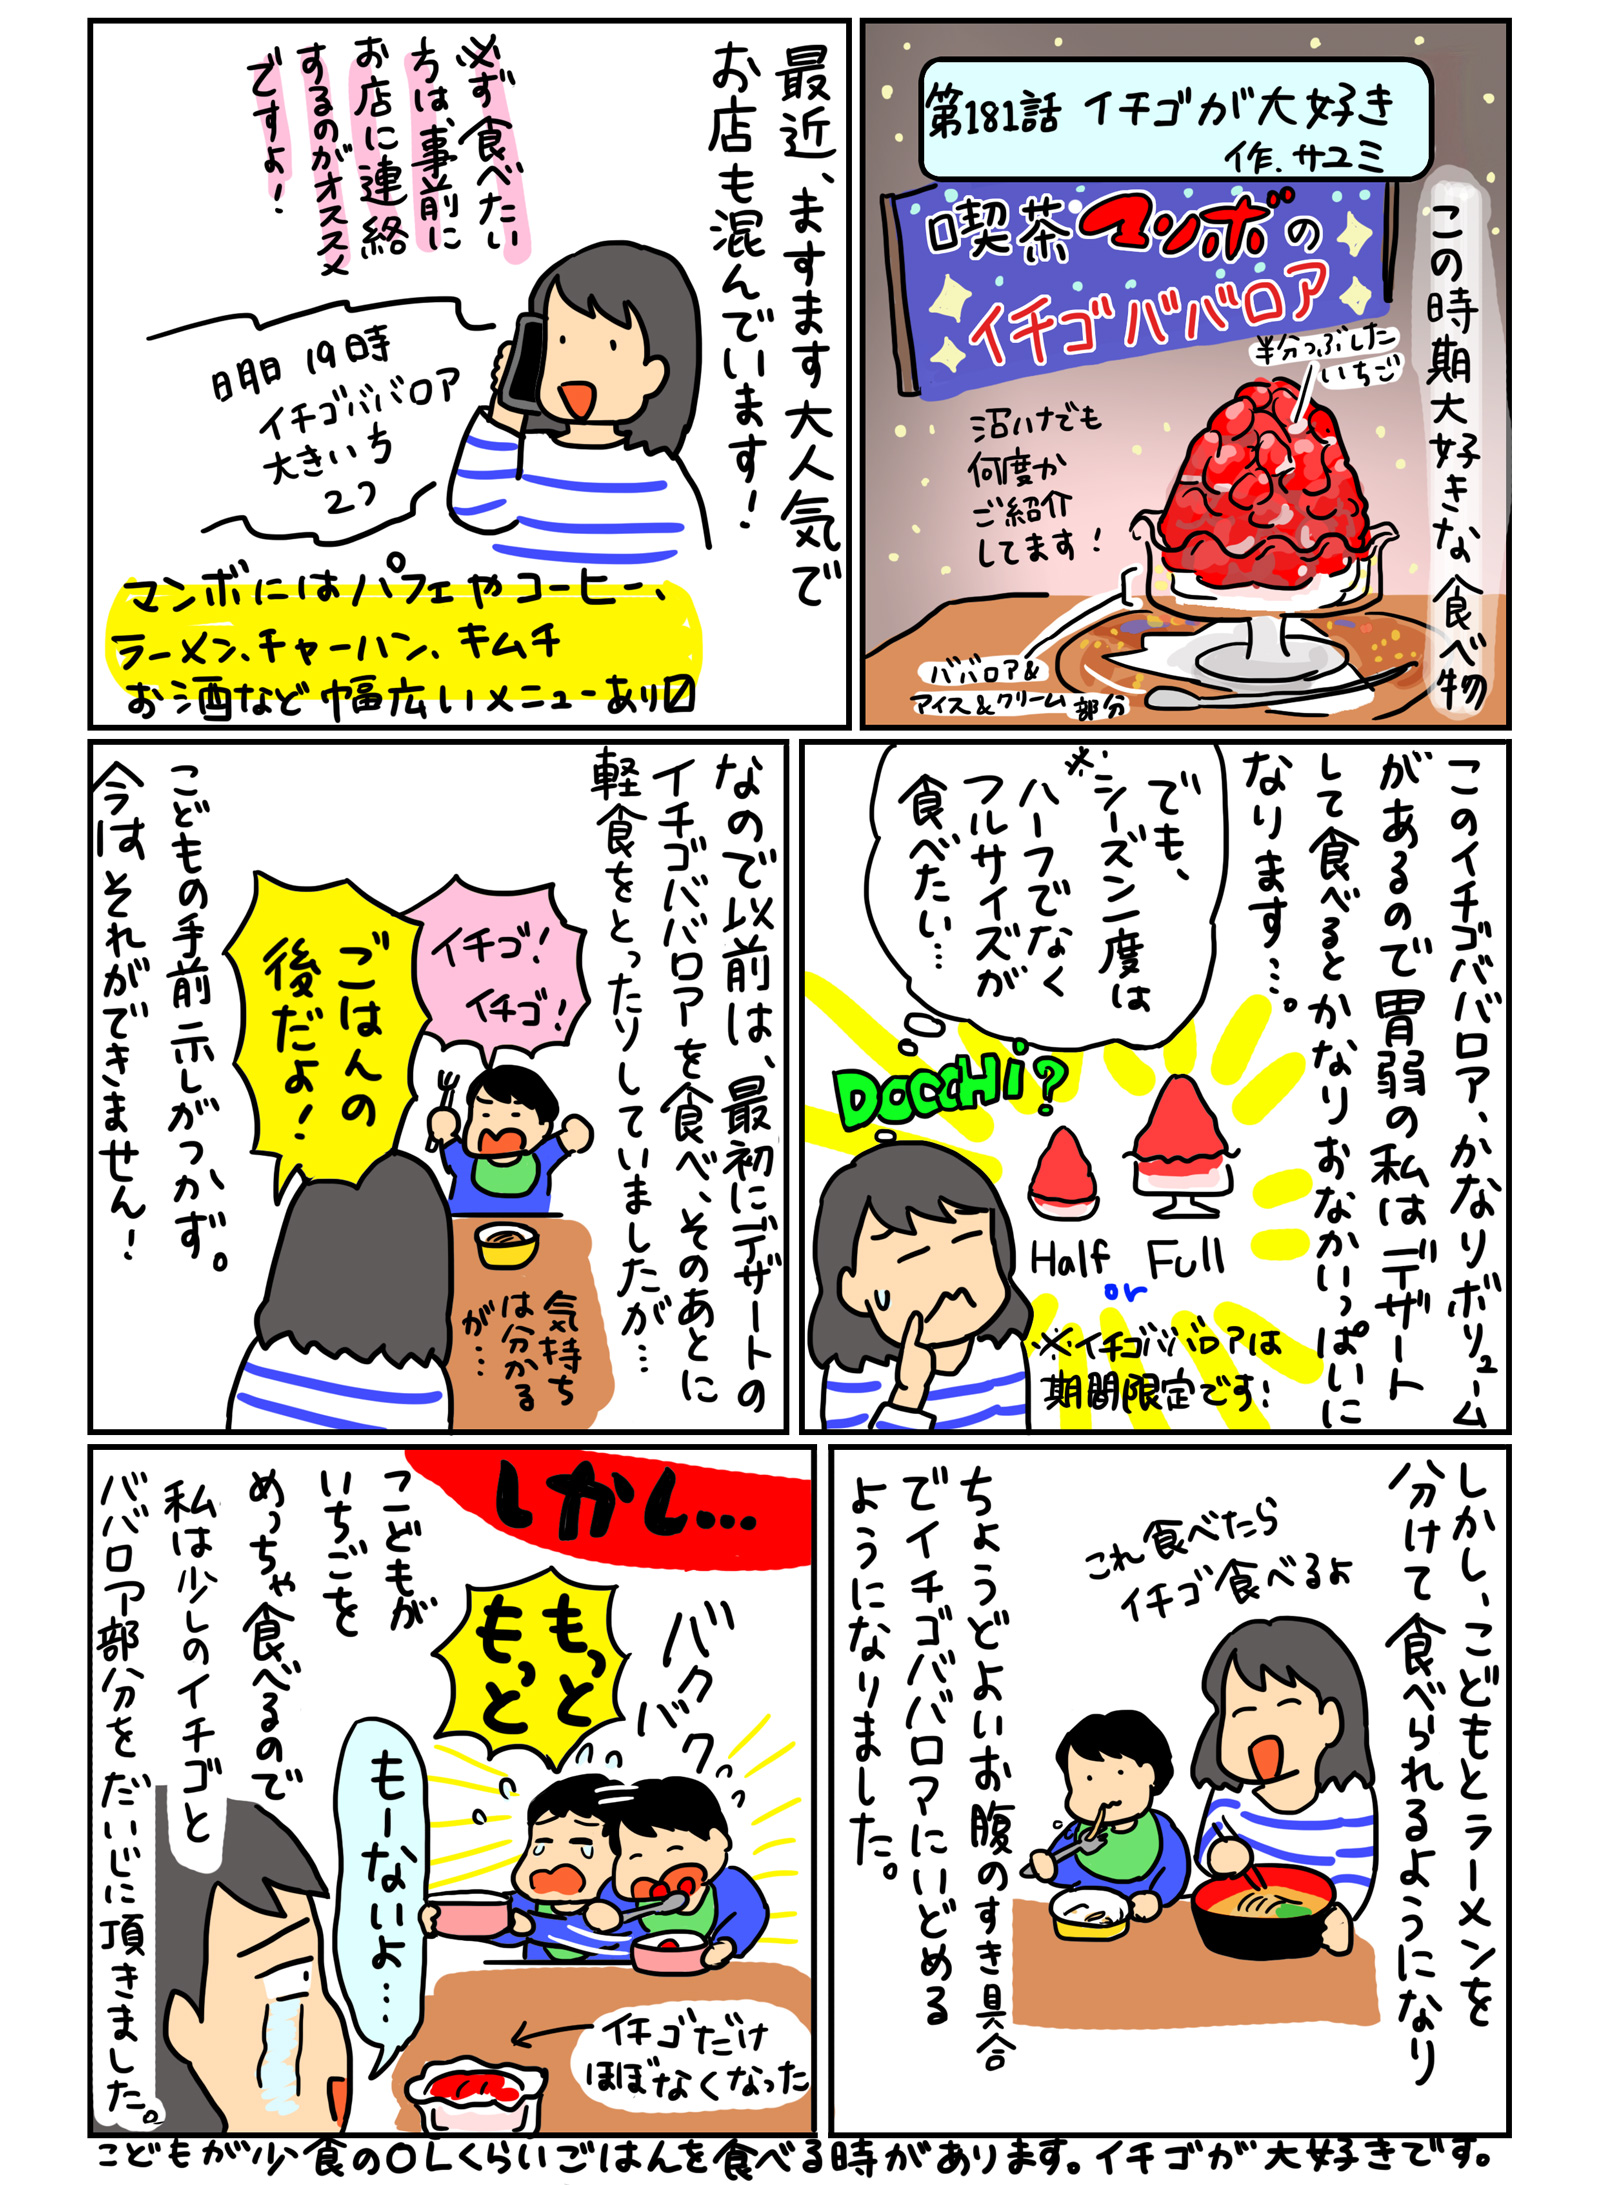 第181話 イチゴが大好き
作.サユミ
この時期大好きな食べ物
喫茶マンボの
イチゴババロア
半分つぶした
いちご
沼ハナでも
何度か
ご紹介
してます!
ババロア&
アイス&クリーム部分
最近、ますます大人気で
お店も混んでいます!
必ず食べたい
ちは、事前に
お店に連絡
するのがオススメ
ですよ!
明日19時
イチゴババロア
大きいち
2つ
マンボにはパフェやコーヒー、
ラーメン、チャーハン、キムチ
お酒など幅広いメニューあり〼
このイチゴババロア、かなりボリューム
があるので胃弱の私はデザート
して食べるとかなりおなかいっぱいに
なります…。
でも、
※シーズン一度は
ハーフでなく
フルサイズが
食べたい…
DOCCHi?
Half
or
Full
※イチゴババロアは
期間限定です!
なので以前は、最初にデザートの
イチゴババロアを食べ、そのあとに
軽食をとったりしていましたが…
イチゴ!
イチゴ!
ごはんの
後だよ!
気持ち
は分かる
が…
こどもの手前示しがつかず。
今はそれができません!
しかし、こどもとラーメンを
分けて食べられるようになり
これ食べたら
イチゴ食べるよ
ちょうどよいお腹のすき具合
でイチゴババロアにいどめる
ようになりました。
しかし…
バクバク
もっと
もっと
こどもが
いちごを
めっちゃ食べるので
私は少しのイチゴと
ババロア部分をだいじに頂きました。
もーないよ…
イチゴだけ
ほぼなくなった
こどもが少食のOLくらいごはんを食べる時があります。イチゴが大好きです。